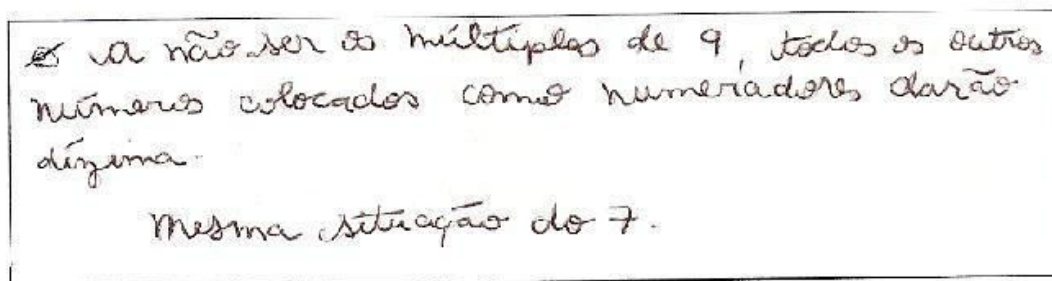 a não ser os múltiplos de 9, todos os outros
números colocados como numeradores darão
dízima.
Mesma situação do 7.